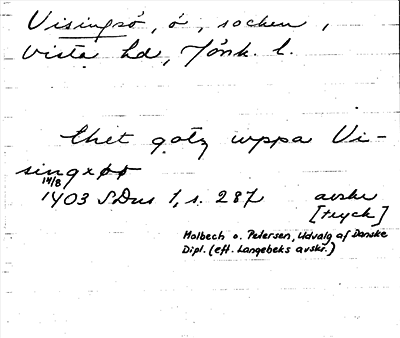 Visingsö, ö, socken,
Vista hd, Jönk. l.
thet gotz wppa Vi-
singxøø
14/8
1403 SDns 1, s. 287 avskr
[tryck]
Molbech o. Petersen, Udvalg af Danske
Dipl. (eft. Langebeks avskr.)